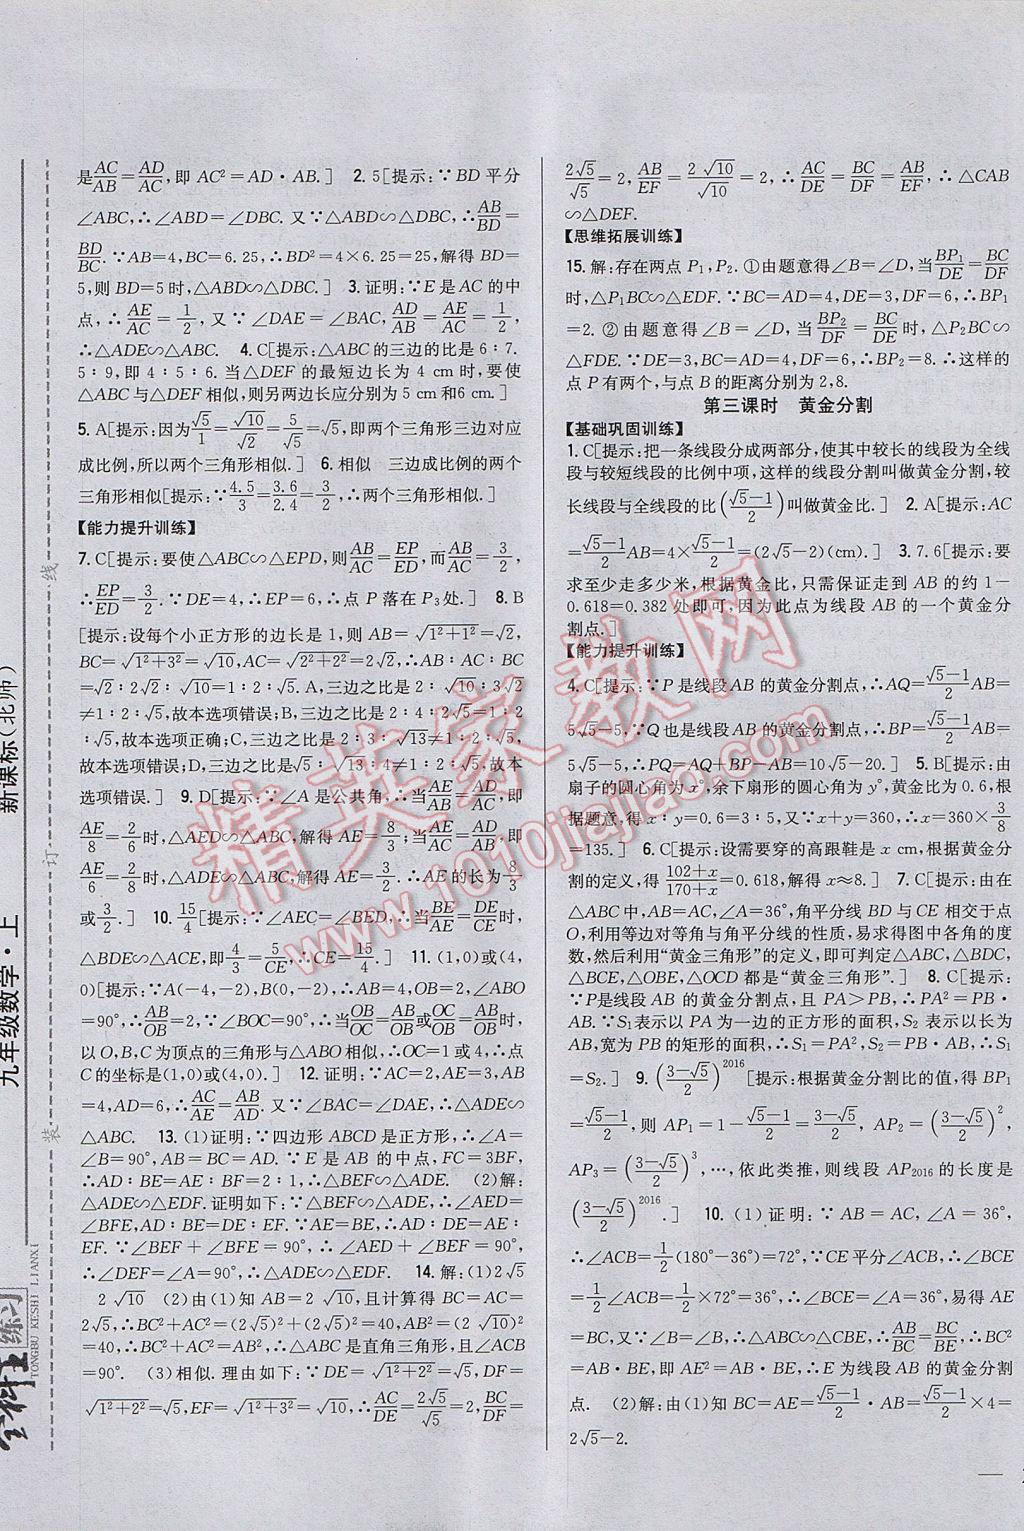 是AC/AB=AD/AC,即 AC²=AD·AB.]　2. 5[提示:∵BD平分
∠ABC,∴∠ABD=∠DBC. 又∵△ABD∽△DBC,∴AB/BD=
BD/BC.∵AB=4,BC=6.25,∴BD²=4×6.25=25,解得 BD=
5,则 BD=5时,△ABD∽△DBC.]　3. 证明:∵E是AC的中
点,∴AE/AC=1/2,又∵∠DAE=∠BAC,AD/AB=AE/AC=1/2,
∴△ADE∽△ABC.　4. C[提示:△ABC的三边的比是6∶7.
5∶9,即4∶5∶6. 当△DEF的最短边长为4 cm时,要使
△ABC与△DEF相似,则另两边长应分别为5 cm和6 cm.]
5. A[提示:因为√5/1=√10/√2=5/√5,即两个三角形三边对应
成比例,所以两个三角形相似.]　6. 相似　三边成比例的两个
三角形相似[提示:∵4.5/3=3.6/2.4=3/2,∴两个三角形相似.]
【能力提升训练】
7. C[提示:要使△ABC∽△EPD,则AB/AC=EP/ED,而AB/AC=3/2,
∴EP/ED=3/2.∵DE=4,∴EP=6,∴点 P 落在P₃处.]　8. B
[提示:设每个小正方形的边长是1,则 AB=√(1²+1²)=√2,
BC=√(1²+3²)=√10,AC=√(2²+2²)=2√2,∴AB∶AC∶BC
=√2∶2√2∶√10=1∶2∶√5. A,三边之比是2∶√10∶3√2
≠1∶2∶√5,故本选项错误;B,三边之比是2∶4∶2√5=1∶2
∶√5,故本选项正确;C,三边之比是2∶3∶√13≠1∶2∶√5,
故本选项错误;D,三边之比是√5∶√13∶4≠1∶2∶√5,故本
选项错误.]　9. D[提示:∵∠A是公共角,∴当AE/AB=AD/AC,即
AE/8=2/6时,△AED∽△ABC,解得 AE=8/3;当AE/AC=AD/AB,即
AE/6=2/8时,△ADE∽△ABC,解得 AE=3/2.∴AE的长为8/3
或3/2.]　10. 15/4[提示:∵∠AEC=∠BED,∴当BE/AE=DE/CE时,
△BDE∽△ACE,即4/3=5/CE,∴CE=15/4.]　11. (1,0)或(4,
0)[提示:∵A(-4,-2),B(0,-2),∴AB=4,OB=2,∠ABO
=90°,∴AB/OB=2,∵∠BOC=90°,∴当OB/OC=AB/OB或OC/OB=AB/OB时,
以O,B,C为顶点的三角形与△ABO相似,∴OC=1或4,∴点
C的坐标是(1,0)或(4,0).]　12. 证明:∵AC=2,AE=3,AB
=4,AD=6,∴AC/AE=AB/AD.又∵∠BAC=∠DAE,∴△ADE∽
△ABC.　13. (1)证明:∵四边形ABCD是正方形,∴∠A=
∠B=90°,AB=BC=AD.∵E是AB的中点,FC=3BF,
∴AD∶BE=AE∶BF=2∶1,∴△BEF∽△ADE.　(2)解:
△ADE∽△EDF. 证明如下:∵△BEF∽△ADE,∴∠AED=
∠BFE,AD∶BE=DE∶EF.∵AE=BE,∴AD∶DE=AE∶
EF. ∵∠BEF+∠BFE=90°,∴∠AED+∠BEF=90°,
∴∠DEF=∠A=90°,∴△ADE∽△EDF.　14. 解:(1)2√5
2√10　(2)由(1)知AB=2√10,且计算得 BC=AC=
2√5,∴BC²+AC²=(2√5)²+(2√5)²=40,AB²=(2√10)²
=40,∴BC²+AC²=AB²,∴△ABC是直角三角形,∠ACB
=90°.　(3)相似. 理由如下:∵DE=√(1²+2²)=√5,DF=
√(1²+2²)=√5,EF=√(1²+3²)=√10,∴AC/DE=2√5/√5=2,BC/DF=
2√5/√5=2,AB/EF=2√10/√10=2,∴AC/DE=BC/DF=AB/EF,∴△CAB
∽△DEF.
【思维拓展训练】
15. 解:存在两点P₁,P₂. ①由题意得∠B=∠D,当BP₁/DE=BC/DF
时,△P₁BC∽△EDF.∵BC=AD=4,DE=3,DF=6,∴BP₁
=2. ②由题意得∠B=∠D,当BP₂/DF=BC/DE时,△P₂BC∽
△FDE.∵DE=3,BC=AD=4,DF=6,∴BP₂=8. ∴这样的
点P有两个,与点B的距离分别为2,8.
第三课时　黄金分割
【基础巩固训练】
1. C[提示:把一条线段分成两部分,使其中较长的线段为全线
段与较短线段的比例中项,这样的线段分割叫做黄金分割,较
长线段与全线段的比((√5-1)/2)叫做黄金比.]　2. A[提示:AC
=(√5-1)/2AB=4×(√5-1)/2=(2√5-2)(cm).]　3. 7.6[提示:要
求至少走多少米,根据黄金比,只需保证走到AB的约1-
0.618=0.382处即可,因为此点为线段AB的一个黄金分
割点.]
【能力提升训练】
4. C[提示:∵P是线段AB的黄金分割点,∴AQ=(√5-1)/2AB=
5√5-5,∵Q也是线段AB的黄金分割点,∴BP=(√5-1)/2AB=
5√5-5,∴PQ=AQ+BP-AB=10√5-20.]　5. B[提示:由
扇子的圆心角为x°,余下扇形的圆心角为y°,黄金比为0.6,根
据题意,得x∶y=0.6=3∶5,又∵x+y=360,∴x=360×3/8
=135.]　6. C[提示:设需要穿的高跟鞋是x cm,根据黄金分
割的定义,得(102+x)/(170+x)=0.618,解得x≈8.]　7. C[提示:由在
△ABC中,AB=AC,∠A=36°,角平分线BD与CE相交于点
O,利用等边对等角与角平分线的性质,易求得图中各角的度
数,然后利用“黄金三角形”的定义,即可判定△ABC,△BDC,
△BCE,△OBE,△OCD都是“黄金三角形”.]　8. C[提示:
∵P是线段AB的黄金分割点,且PA>PB,∴PA²=PB·
AB.∵S₁表示以PA为一边的正方形的面积,S₂表示以长为
AB,宽为PB的矩形的面积,∴S₁=PA²,S₂=PB·AB,∴S₁
=S₂.]　9. ((3-√5)/2)²⁰¹⁶[提示:根据黄金分割比的值,得BP₁
=(√5-1)/2,则AP₁=1-(√5-1)/2=(3-√5)/2,AP₂=((3-√5)/2)²,
AP₃=((3-√5)/2)³,…,依此类推,则线段AP₂₀₁₆的长度是
((3-√5)/2)²⁰¹⁶.]　10. (1)证明:∵AB=AC,∠A=36°,
∴∠ACB=1/2(180°-36°)=72°,∵CE平分∠ACB,∴∠BCE
=1/2∠ACB=1/2×72°=36°,∴∠BCE=∠A=36°,易得AE
=BC,又∵∠B=∠B,∴△ABC∽△CBE,∴AB/BC=BC/BE,∴BC²
=AB·BE,即AE²=AB·BE,∴E为线段AB的黄金分割
点.　(2)解:由(1)知BC=AE=(√5-1)/2·AB=(√5-1)/2×4=
2√5-2.
九年级数学·上　新课标(北师)
装 订 线
全科王
练习
TONGBU KESHI LIANXI
精英家教网
www.1010jiajiao.com